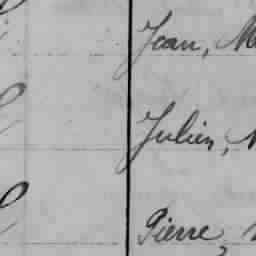 Jean, M
Julien,
Pierre,